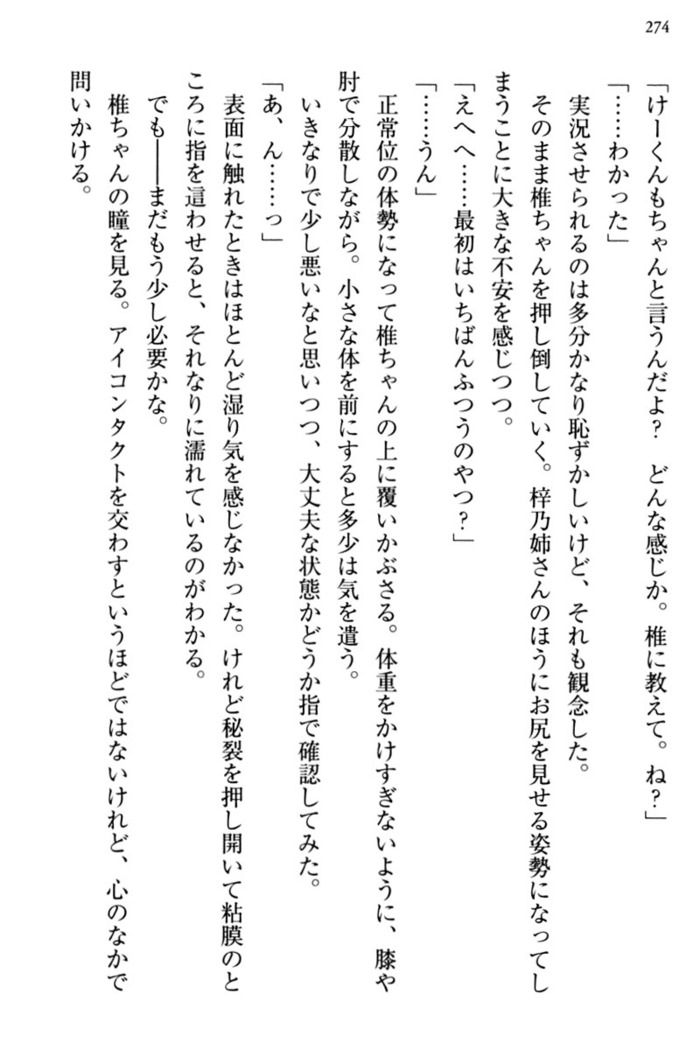 274
「けーくんもちゃんと言うんだよ? どんな感じか。椎に教えて。ね?」
「……わかった」
実況させられるのは多分かなり恥ずかしいけど、それも観念した。
そのまま椎ちゃんを押し倒していく。梓乃姉さんのほうにお尻を見せる姿勢になってし
まうことに大きな不安を感じつつ。
「えへへ……最初はいちばんふつうのやつ?」
「……うん」
正常位の体勢になって椎ちゃんの上に覆いかぶさる。体重をかけすぎないように、膝や
肘で分散しながら。小さな体を前にすると多少は気を遣う。
いきなりで少し悪いなと思いつつ、大丈夫な状態かどうか指で確認してみた。
「あ、ん……っ」
表面に触れたときはほとんど湿り気を感じなかった。けれど秘裂を押し開いて粘膜のと
ころに指を這わせると、それなりに濡れているのがわかる。
でも――まだもう少し必要かな。
椎ちゃんの瞳を見る。アイコンタクトを交わすというほどではないけれど、心のなかで
問いかける。